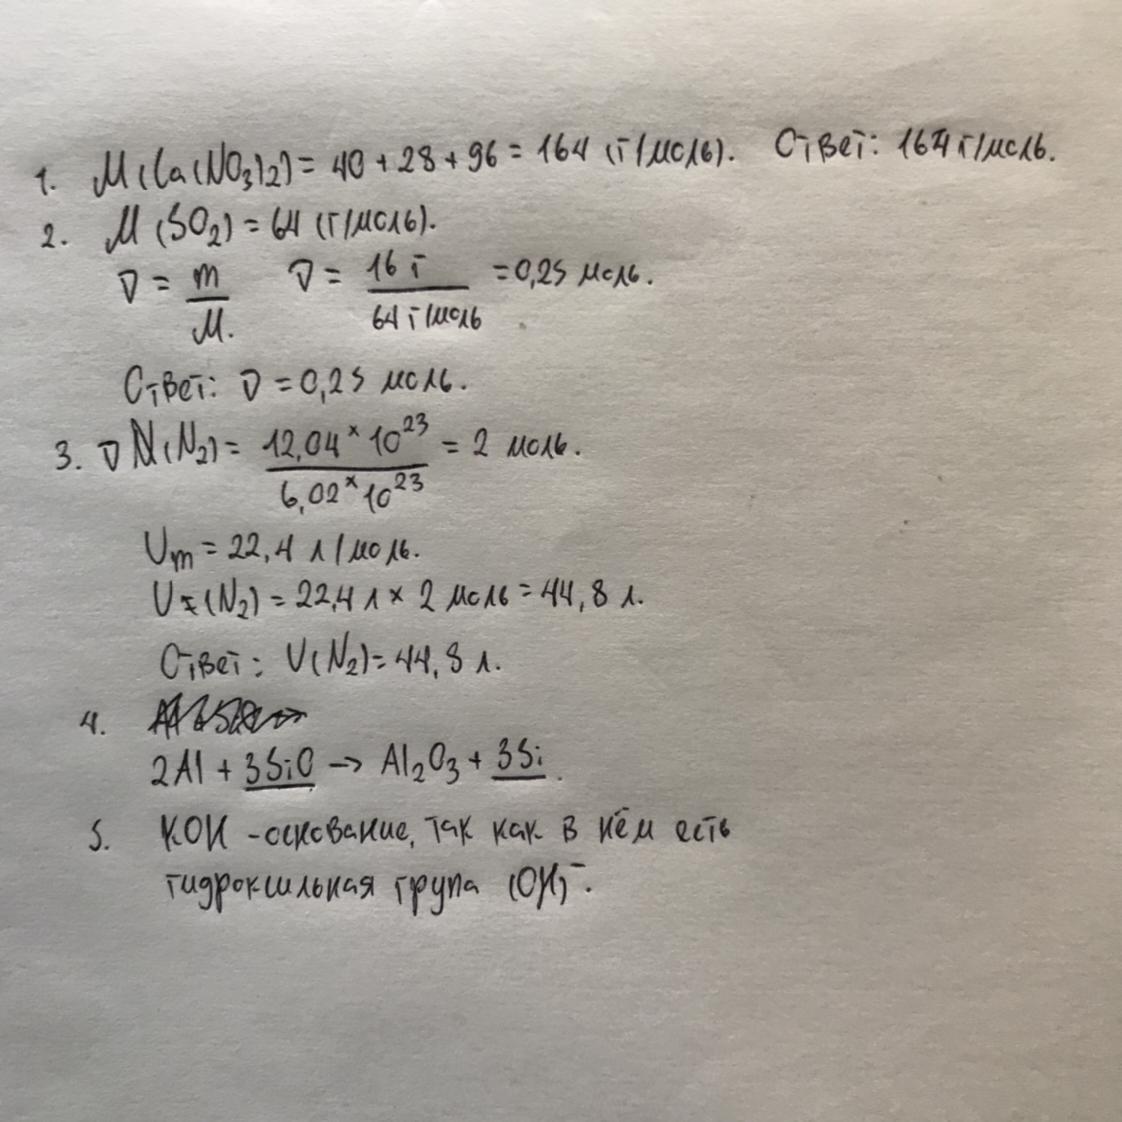 1. M(Ca(NO₃)₂) = 40 + 28 + 96 = 164 (г/моль). Ответ: 164 г/моль.
2. M (SO₂) = 64 (г/моль).
ν = m/M. ν = 16 г / 64 г/моль = 0,25 моль.
Ответ: ν = 0,25 моль.
3. ν N(N₂) = 12,04 × 10²³ / 6,02 × 10²³ = 2 моль.
Vm = 22,4 л/моль.
V (N₂) = 22,4 л × 2 моль = 44,8 л.
Ответ: V(N₂) = 44,8 л.
4.
2Al + 3SiO → Al₂O₃ + 3Si.
5. KOH - основание, так как в нём есть
гидроксильная група (OH)⁻.